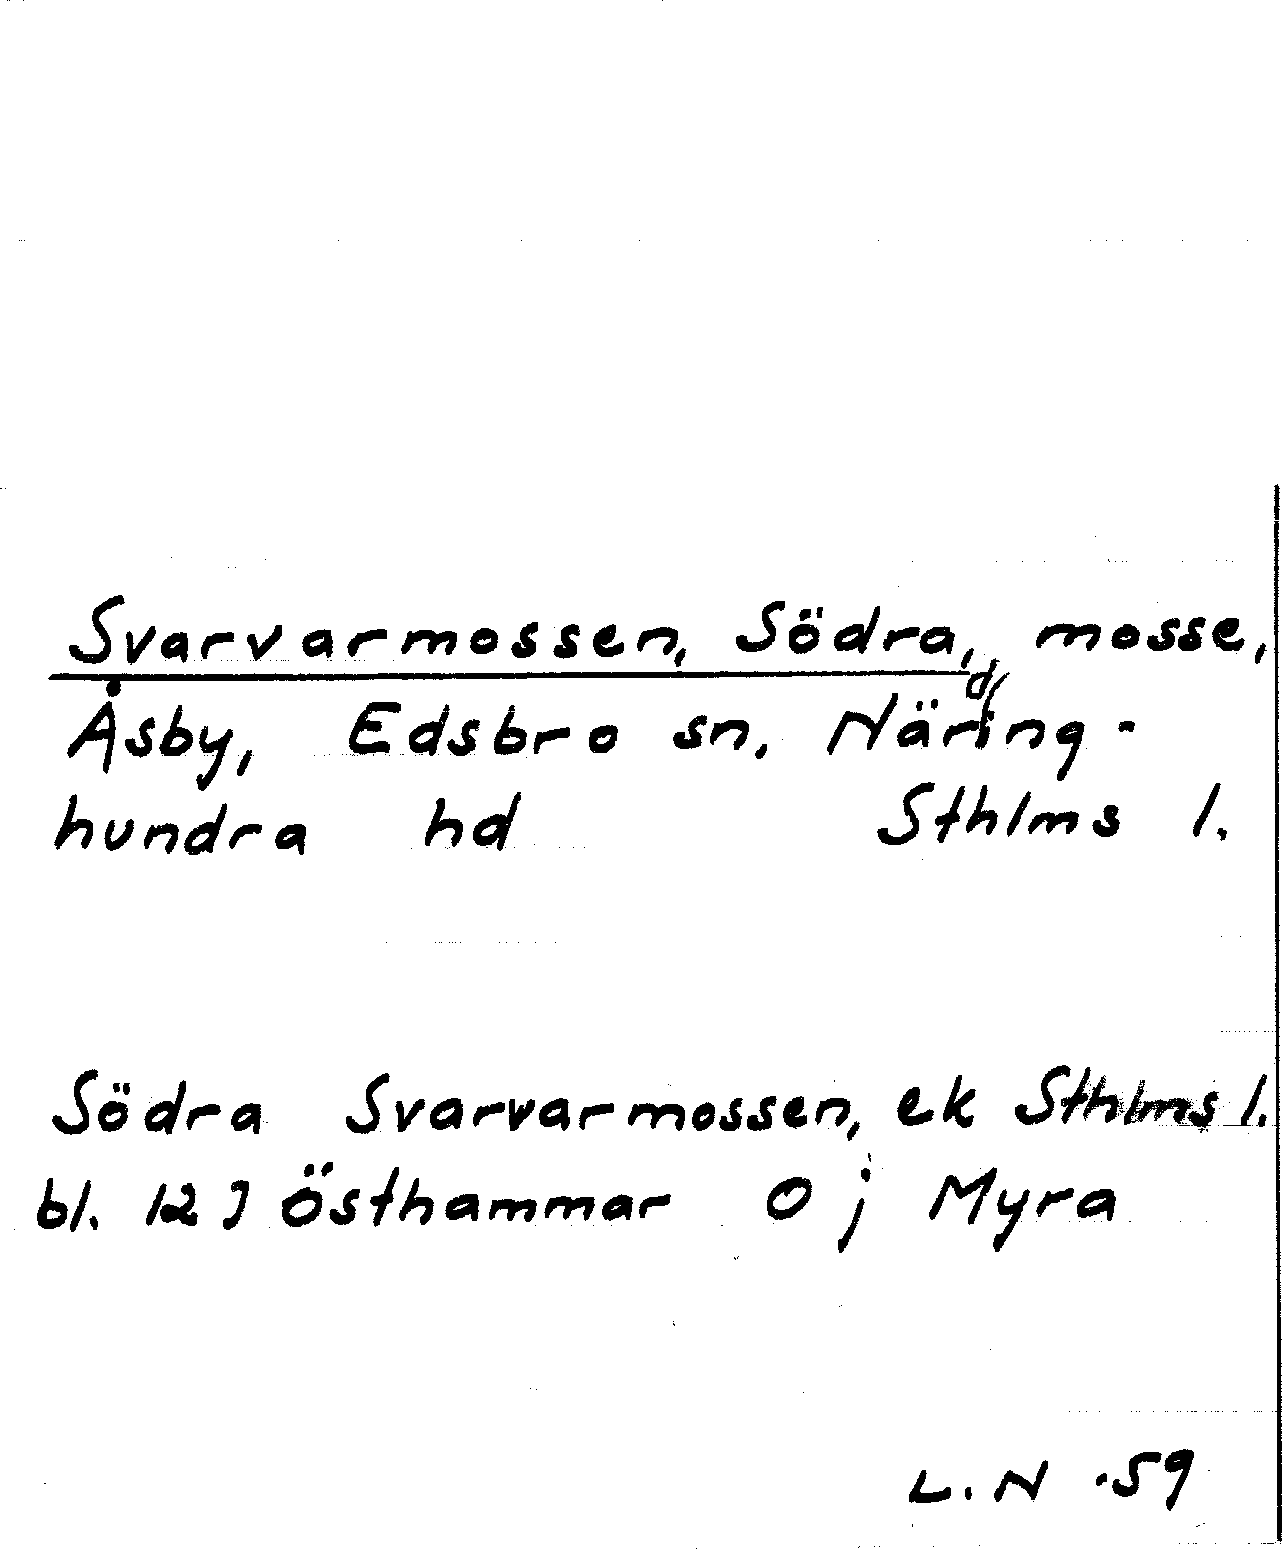 Svarvarmossen, Södra, mosse,
Åsby, Edsbro sn, Närding-
hundra hd Sthlms l.
Södra Svarvarmossen, ek Sthlms l.
bl. 12 J Östhammar O j Myra
L. N -59